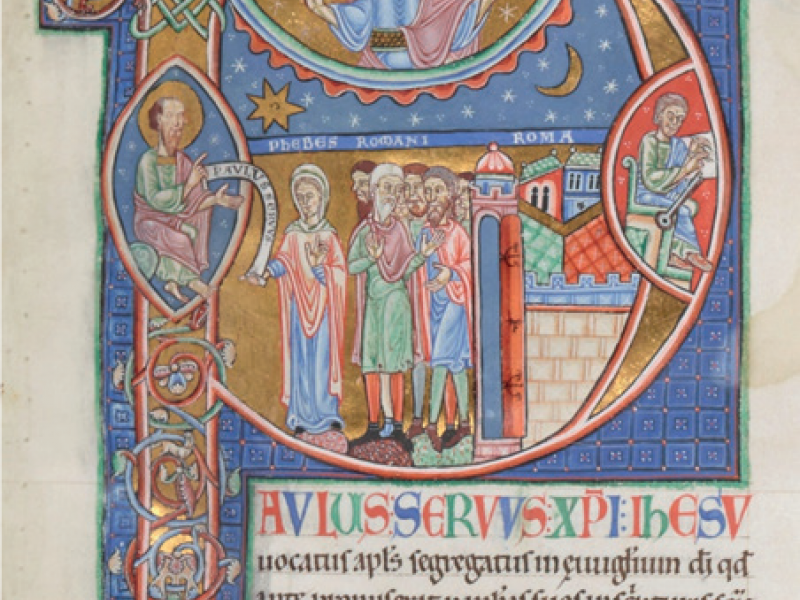 PHEBES ROMANI ROMA
PAVLVS SERVVS
AVLUS:SERVVS:XP̄I:IhESV
uocatus apl̄s segregatus in euuglīum dī qd̄